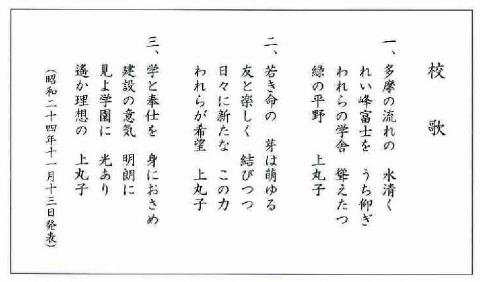 校歌
一、多摩の流れの　水清く
れい峰富士を　うち仰ぎ
われらの学舎　聳えたつ
緑の平野　上丸子
二、若き命の　芽は萌ゆる
友と楽しく　結びつつ
日々に新たな　この力
われらが希望　上丸子
三、学と奉仕を　身におさめ
建設の意気　明朗に
見よ学園に　光あり
遙か理想の　上丸子
(昭和二十四年十一月十三日発表)